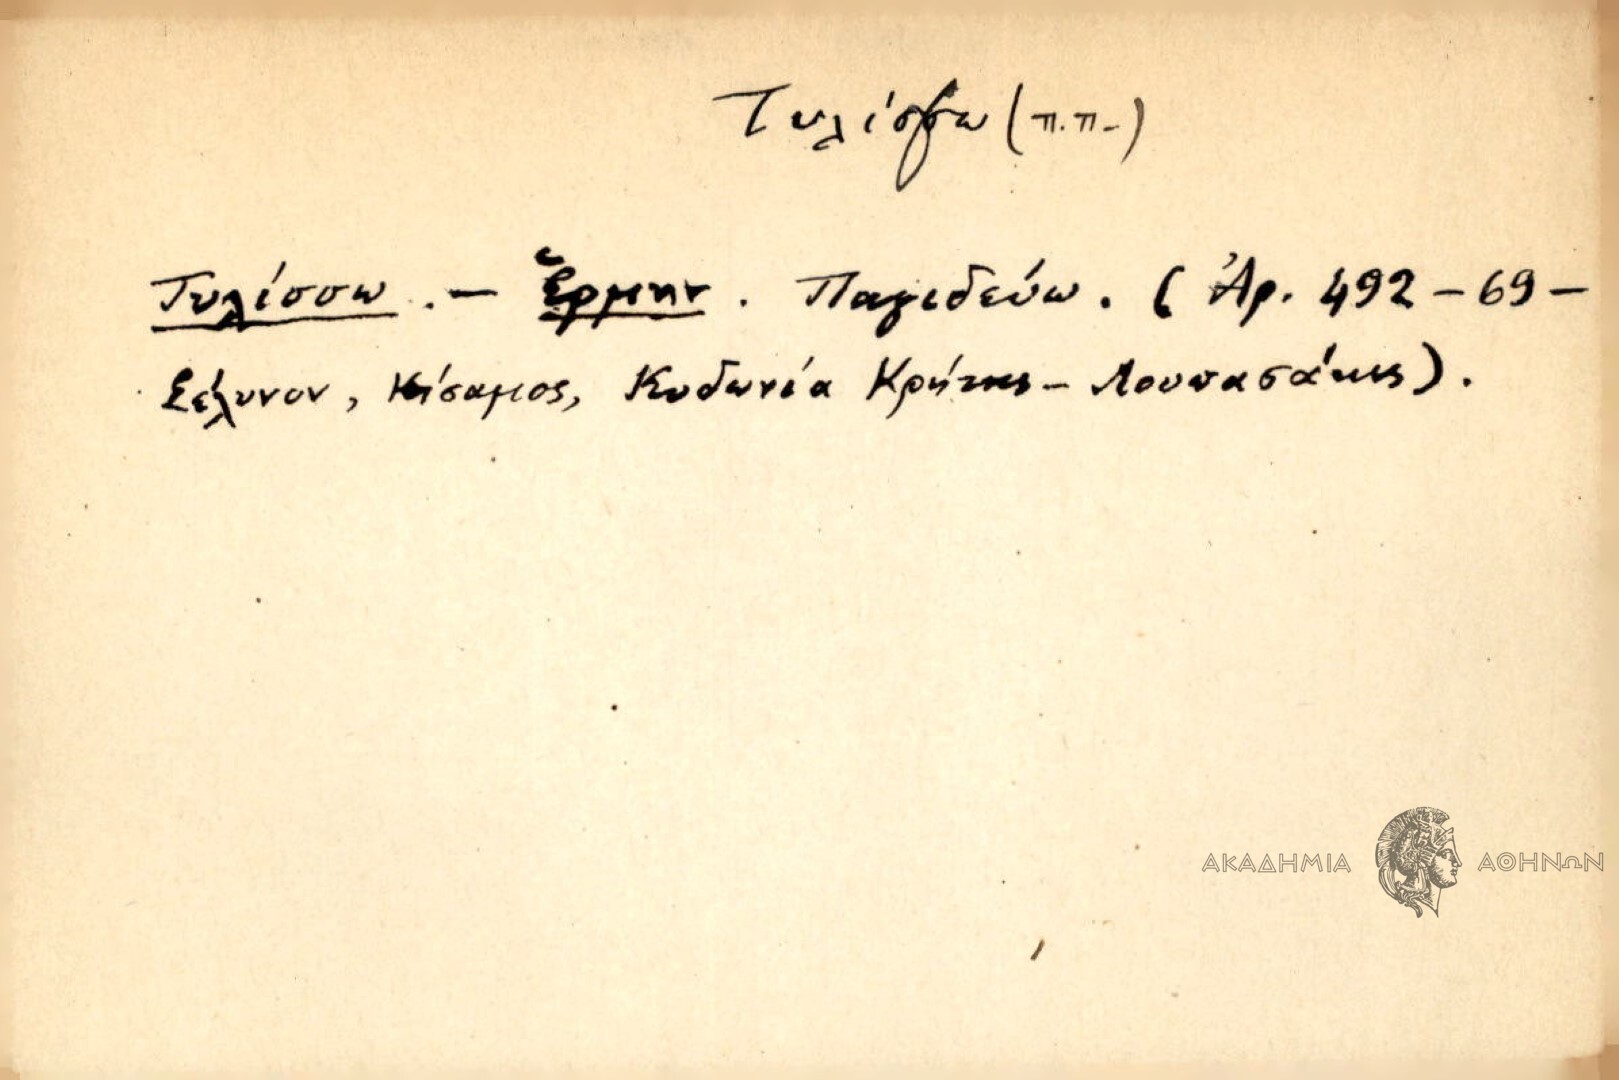 Τυλίσσω (π.π.)
Τυλίσσω . — Ἑρμην . Παγιδεύω . ( Ἀρ. 492 – 69 –
Σέλυνον , Κίσαμος, Κυδωνία Κρήτης – Λουπασάκις ) .
ΑΚΑΔΗΜΙΑ ΑΘΗΝΩΝ